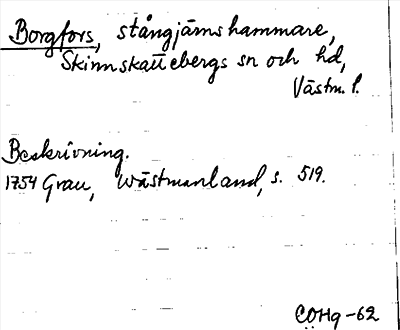 Borgfors, stångjärnshammare,
Skinnskattebergs sn och hd,
Västm. l.
Beskrivning.
1754 Grau, Wästmanland, s. 519.
COHg-62